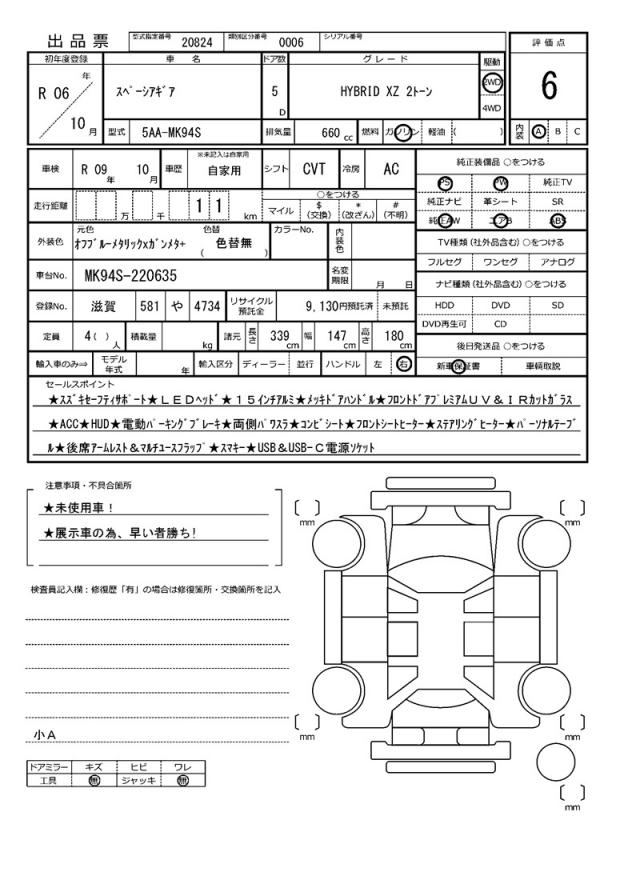 出品票
型式指定番号 20824 類別区分番号 0006 シリアル番号
評価点
初年度登録 車名 ドア数 グレード 駆動
R 06 年 10 月
ｽﾍﾟｰｼｱｷﾞｱ
5 D
HYBRID XZ 2ﾄｰﾝ
2WD
4WD
6
型式 5AA-MK94S 排気量 660 cc 燃料 ガソリン 軽油 ( )
内装 A B C
車検 R 09 年 10 月 車歴 ※未記入は自家用 自家用 シフト CVT 冷房 AC
純正装備品 ○をつける
PS PW 純正TV
純正ナビ 革シート SR
純正AW エアB ABS
走行距離 万 千 1 1 km
○をつける
マイル $(交換) *(改ざん) #(不明)
外装色 元色 ｵﾌﾌﾞﾙｰﾒﾀﾘｯｸxｶﾞﾝﾒﾀ+ 色替 ( 色替無 ) カラーNo. 内装色
TV種類 (社外品含む) ○をつける
フルセグ ワンセグ アナログ
車台No. MK94S-220635 名変期限 月 日
ナビ種類 (社外品含む) ○をつける
HDD DVD SD
DVD再生可 CD
登録No. 滋賀 581 や 4734 リサイクル預託金 9,130円預託済 未預託
定員 4 ( ) 人 積載量 kg 諸元 長さ 339 cm 幅 147 cm 高さ 180 cm
後日発送品 ○をつける
新車保証書 車輌取説
輸入車のみ⇒ モデル年式 年 輸入区分 ディーラー 並行 ハンドル 左 右
セールスポイント
★ｽｽﾞｷｾｰﾌﾃｨｻﾎﾟｰﾄ★ＬＥＤﾍｯﾄﾞ★１５ｲﾝﾁｱﾙﾐ★ﾒｯｷﾄﾞｱﾊﾝﾄﾞﾙ★ﾌﾛﾝﾄﾄﾞｱﾌﾟﾚﾐｱﾑＵＶ＆ＩＲｶｯﾄｶﾞﾗｽ
★ACC★HUD★電動ﾊﾟｰｷﾝｸﾞﾌﾞﾚｰｷ★両側ﾊﾟﾜｽﾗ★ｺﾝﾋﾞｼｰﾄ★ﾌﾛﾝﾄｼｰﾄﾋｰﾀｰ★ｽﾃｱﾘﾝｸﾞﾋｰﾀｰ★ﾊﾟｰｿﾅﾙﾃｰﾌﾞ
ﾙ★後席ｱｰﾑﾚｽﾄ＆ﾏﾙﾁﾕｰｽﾌﾗｯﾌﾟ★ｽﾏｷｰ★USB＆USB-Ｃ電源ｿｹｯﾄ
注意事項・不具合箇所
★未使用車！
★展示車の為、早い者勝ち!
検査員記入欄：修復歴「有」の場合は修復箇所・交換箇所を記入
小Ａ
ドアミラー キズ ヒビ ワレ
工具 無 ジャッキ 無
mm
mm
mm
mm
mm